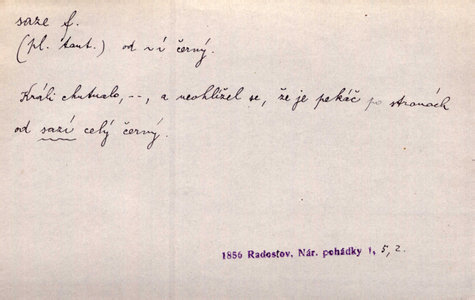 saze f.
(pl. tant.) od ~í černý.
Králi chutnalo, --, a neohlížel se, že je pekáč po stranách
od sazí celý černý.
1856 Radostov, Nár. pohádky 1, 5, 2.